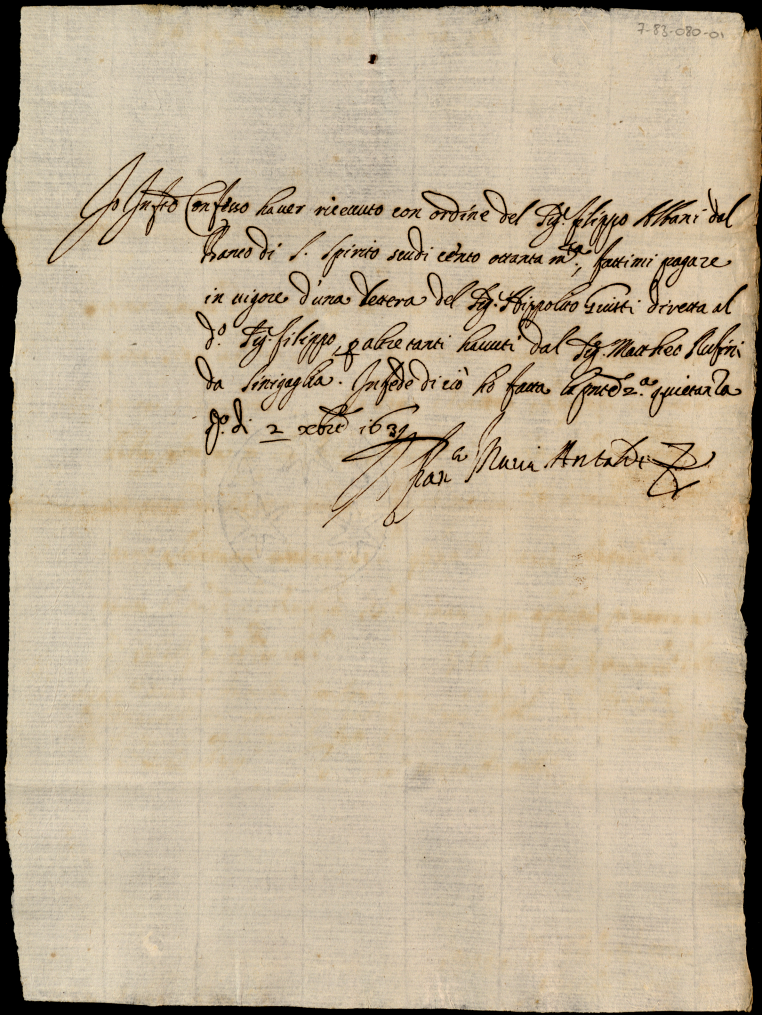 7-83-080-01
Io Infto Confesso haver riceuuto con ordine del Sig. filippo Albani dal
Banco di S. Spirito scudi cento ottanta mta, fattimi pagare
in uigore d'una lettera del Sig. Hippolito Guitti diretta al
do. Sig. filippo, p altre tanti hauuti dal Sig. Mattheo Rufini
da Sinigaglia. In fede di ciò ho fatta la pnte 2.a quietanza
q.o di 2 xbre 163
Fran.co Maria Antaldi